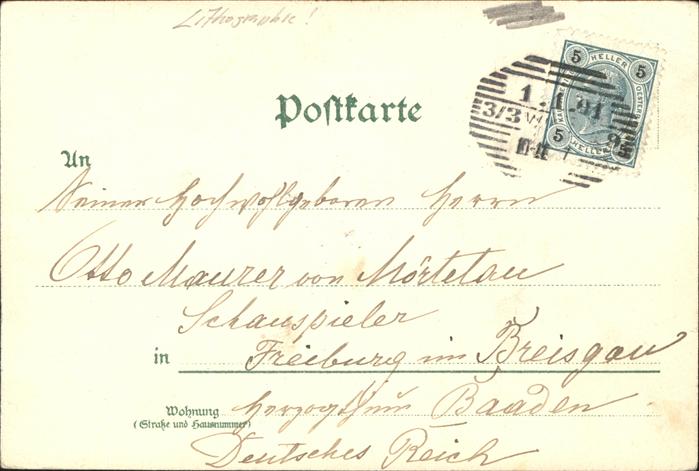 Lithographie!
Postkarte
5 HELLER 5
5 HELLER
1.1.01
3/3 W
An
Seiner Hochwohlgeboren Herrn
Otto Maurer von Mörtelau
Schauspieler
in Freiburg im Breisgau
Wohnung Herzogthum Baaden
(Straße und Hausnummer)
Deutsches Reich